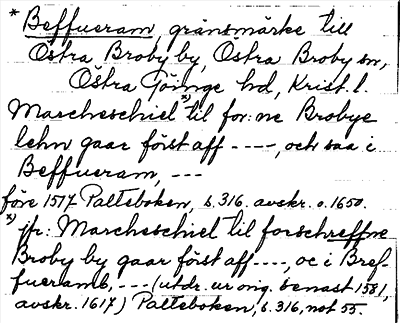 * Beffueram, gränsmärke till
Östra Broby by, Östra Broby sn,
Östra Göinge hd, Krist. l.
Marcheschiel *) til for:ne Brobye
lehn gaar först aff ----, och saa i
Beffueram, ---
före 1517 Palteboken, s. 316. avskr. o. 1650.
*) jfr: Marcheschiel til forschreffne
Broby by gaar först aff ----, oc i Bref-
fueramb, --- (utdr. ur orig. senast 1581,
avskr. 1617) Palteboken, s. 316, not 55.